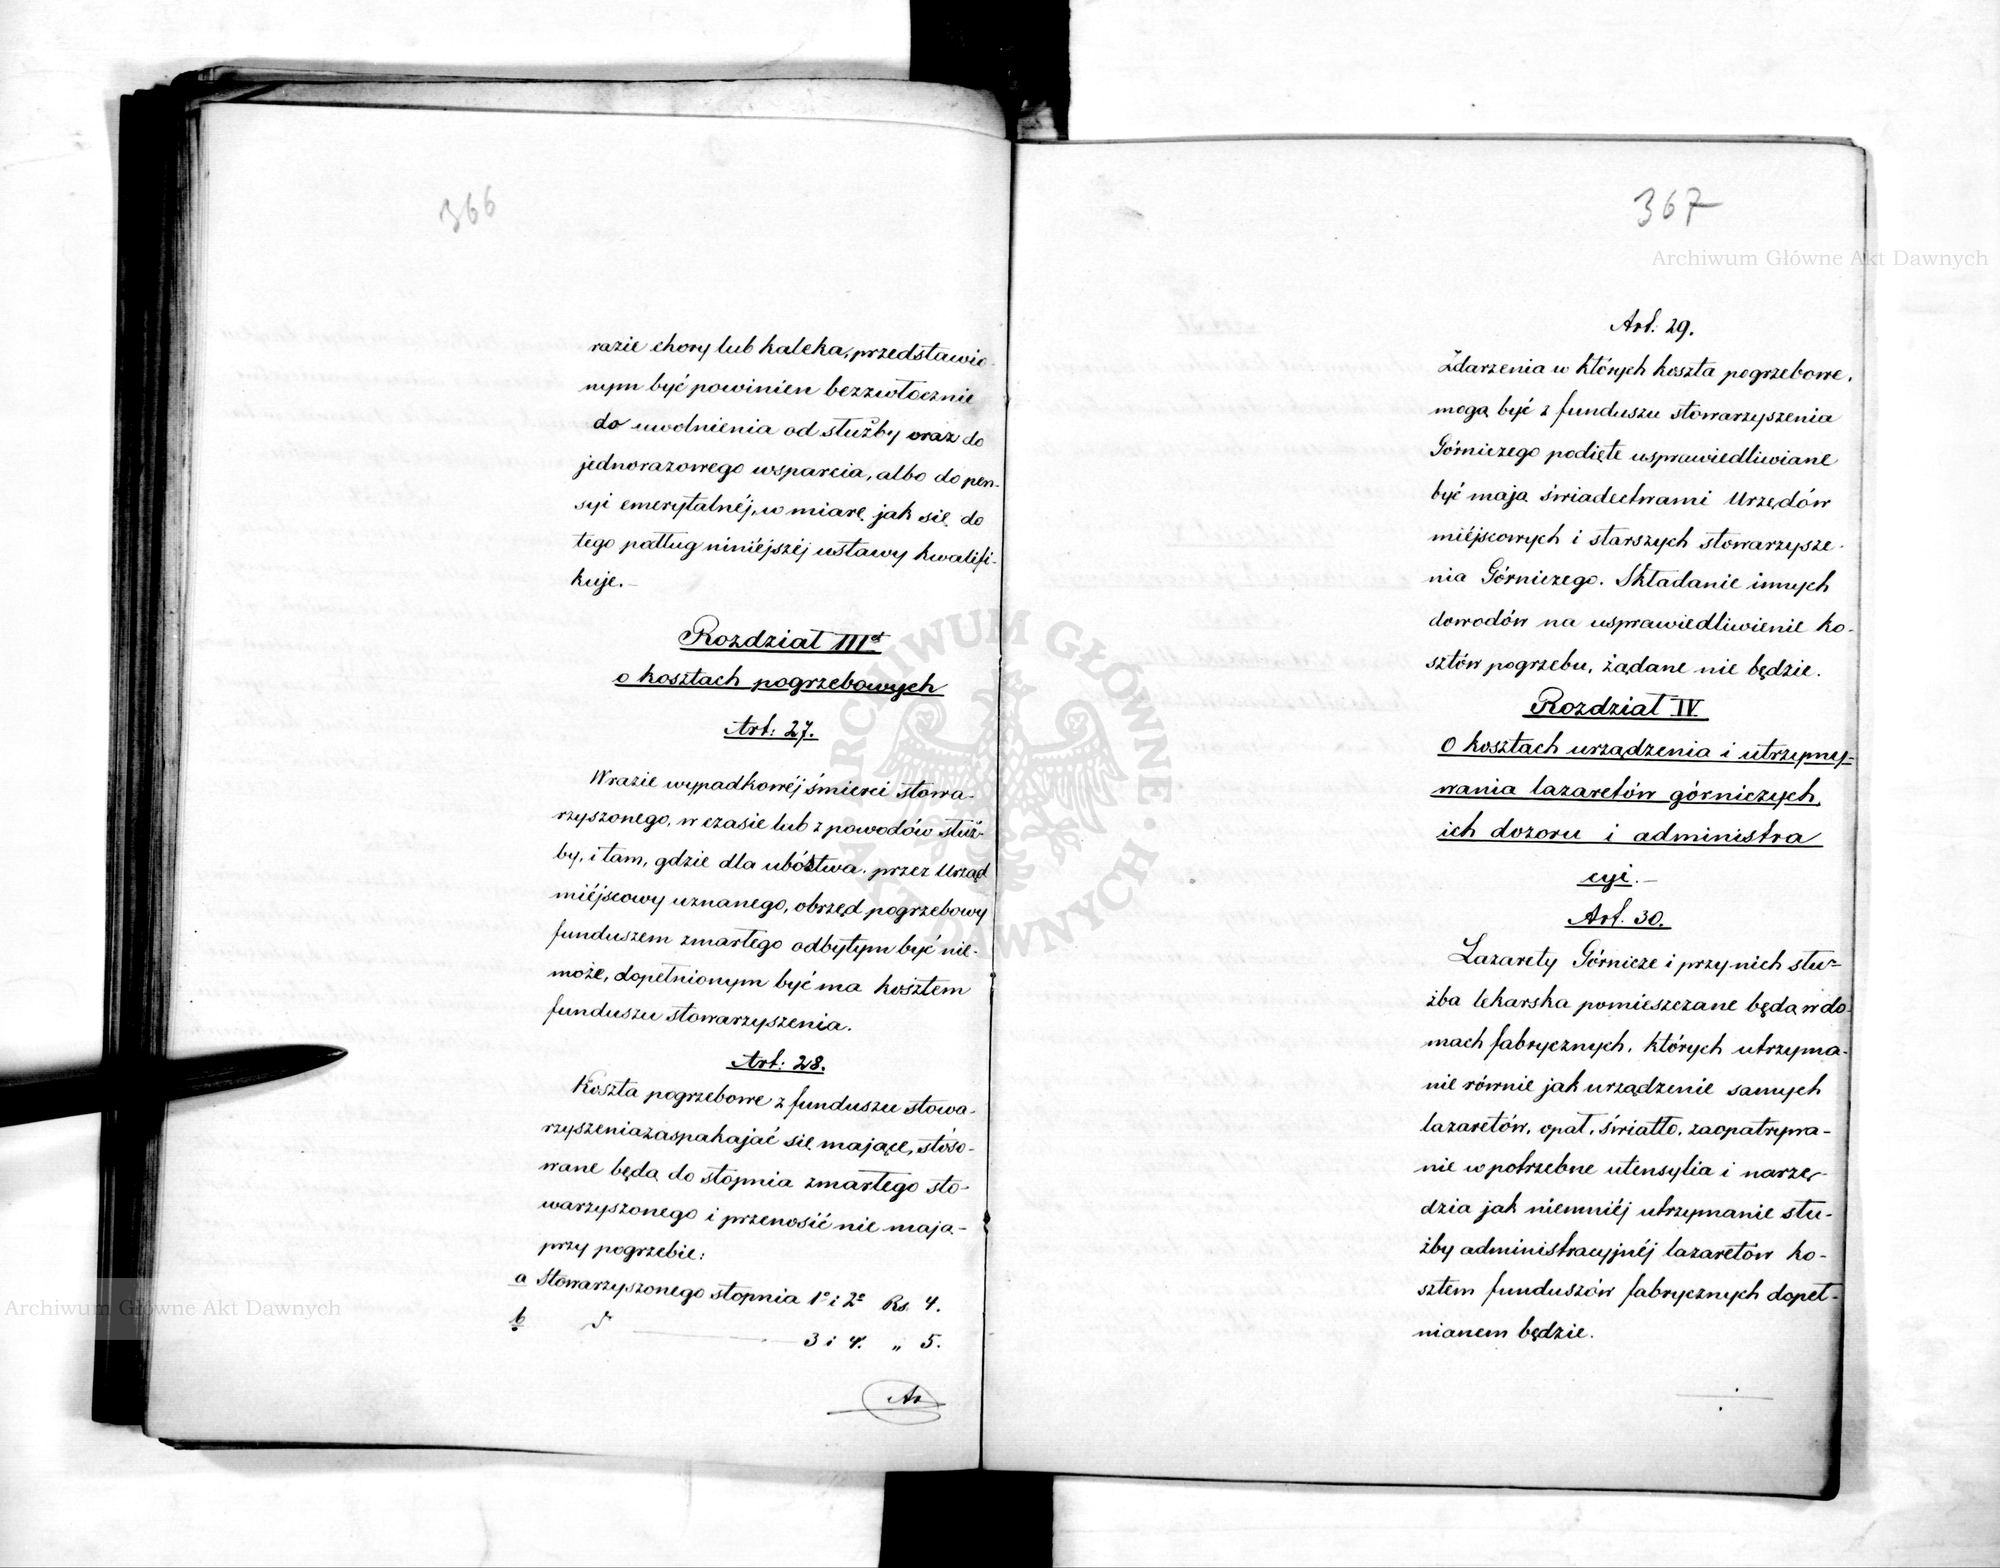 366
razie chory lub kaleka, przedstawio-
nym być powinien bezzwłocznie
do uwolnienia od służby oraz do
jednorazowego wsparcia, albo do pen-
syi emerytalnéj, w miarę jak się do
tego podług niniéjszéj ustawy kwalifi-
kuje.-
Rozdział III
o kosztach pogrzebowych
Art: 27.
W razie wypadkowéj śmierci stowa-
rzyszonego, w czasie lub z powodów służ-
by, i tam, gdzie dla ubóstwa przez Urząd
miéjscowy uznanego, obrzęd pogrzebowy
funduszem zmarłego odbytym być nie-
może, dopełnionym być ma kosztem
funduszu stowarzyszenia.
Art: 28.
Koszta pogrzebowe z funduszu stowa-
rzyszenia zaspakajać się mające, stóso-
wane będą do stopnia zmarłego sto-
warzyszonego i przenosić nie mają-
przy pogrzebie:
a Stowarzyszonego stopnia 1° i 2° Rs. 4.
b d° 3 i 4. „ 5.
Ar
367
Art: 29.
Zdarzenia w których koszta pogrzebowe,
mogą być z funduszu stowarzyszenia
Górniczego podięte usprawiedliwiane
być mają świadectwami Urzędów
miéjscowych i starszych stowarzysze-
nia Górniczego. Składanie innych
dowodów na usprawiedliwienie ko-
sztów pogrzebu, żądane nie będzie.
Rozdział IV
O kosztach urządzenia i utrzymy-
wania lazaretów górniczych,
ich dozoru i administra
cyi.-
Art. 30.
Lazarety Górnicze i przy nich słu-
żba lekarska pomieszczane będą w do-
mach fabrycznych, których utrzyma-
nie równie jak urządzenie samych
lazaretów, opał, światło, zaopatrywa-
nie w potrzebne utensylia i narzę-
dzia jak niemniéj utrzymanie słu-
żby administracyjnéj lazaretów ko-
sztem funduszów fabrycznych dopeł-
nianem będzie.
Archiwum Główne Akt Dawnych
Archiwum Główne Akt Dawnych
ARCHIWUM GŁÓWNE AKT DAWNYCH